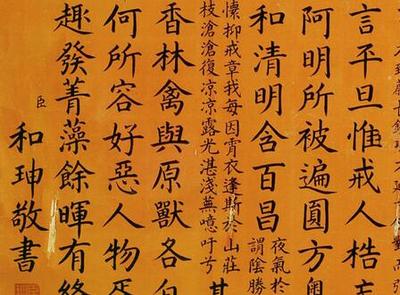 言平旦惟戒人梏
阿明所被遍圓方
和清明含百昌
夜氣於
謂陰勝
懍抑戒章我每因宵衣逢斯於山莊
枝滄滄復涼涼露光湛淺蕪噫吁兮
香林禽與原獸各自
何所容好惡人物
趣發菁藻餘暉有終
臣
和珅敬書